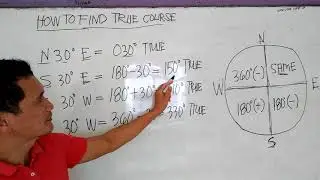 HOW TO FIND TRUE COURSE
N 30° E = 030° TRUE
S 30° E = 180°-30° = 150° TRUE
30° W = 180°+30° = TRUE
30° W = 360° 330° TRUE
N
360°(-) SAME
W E
180°(+) 180°(-)
S